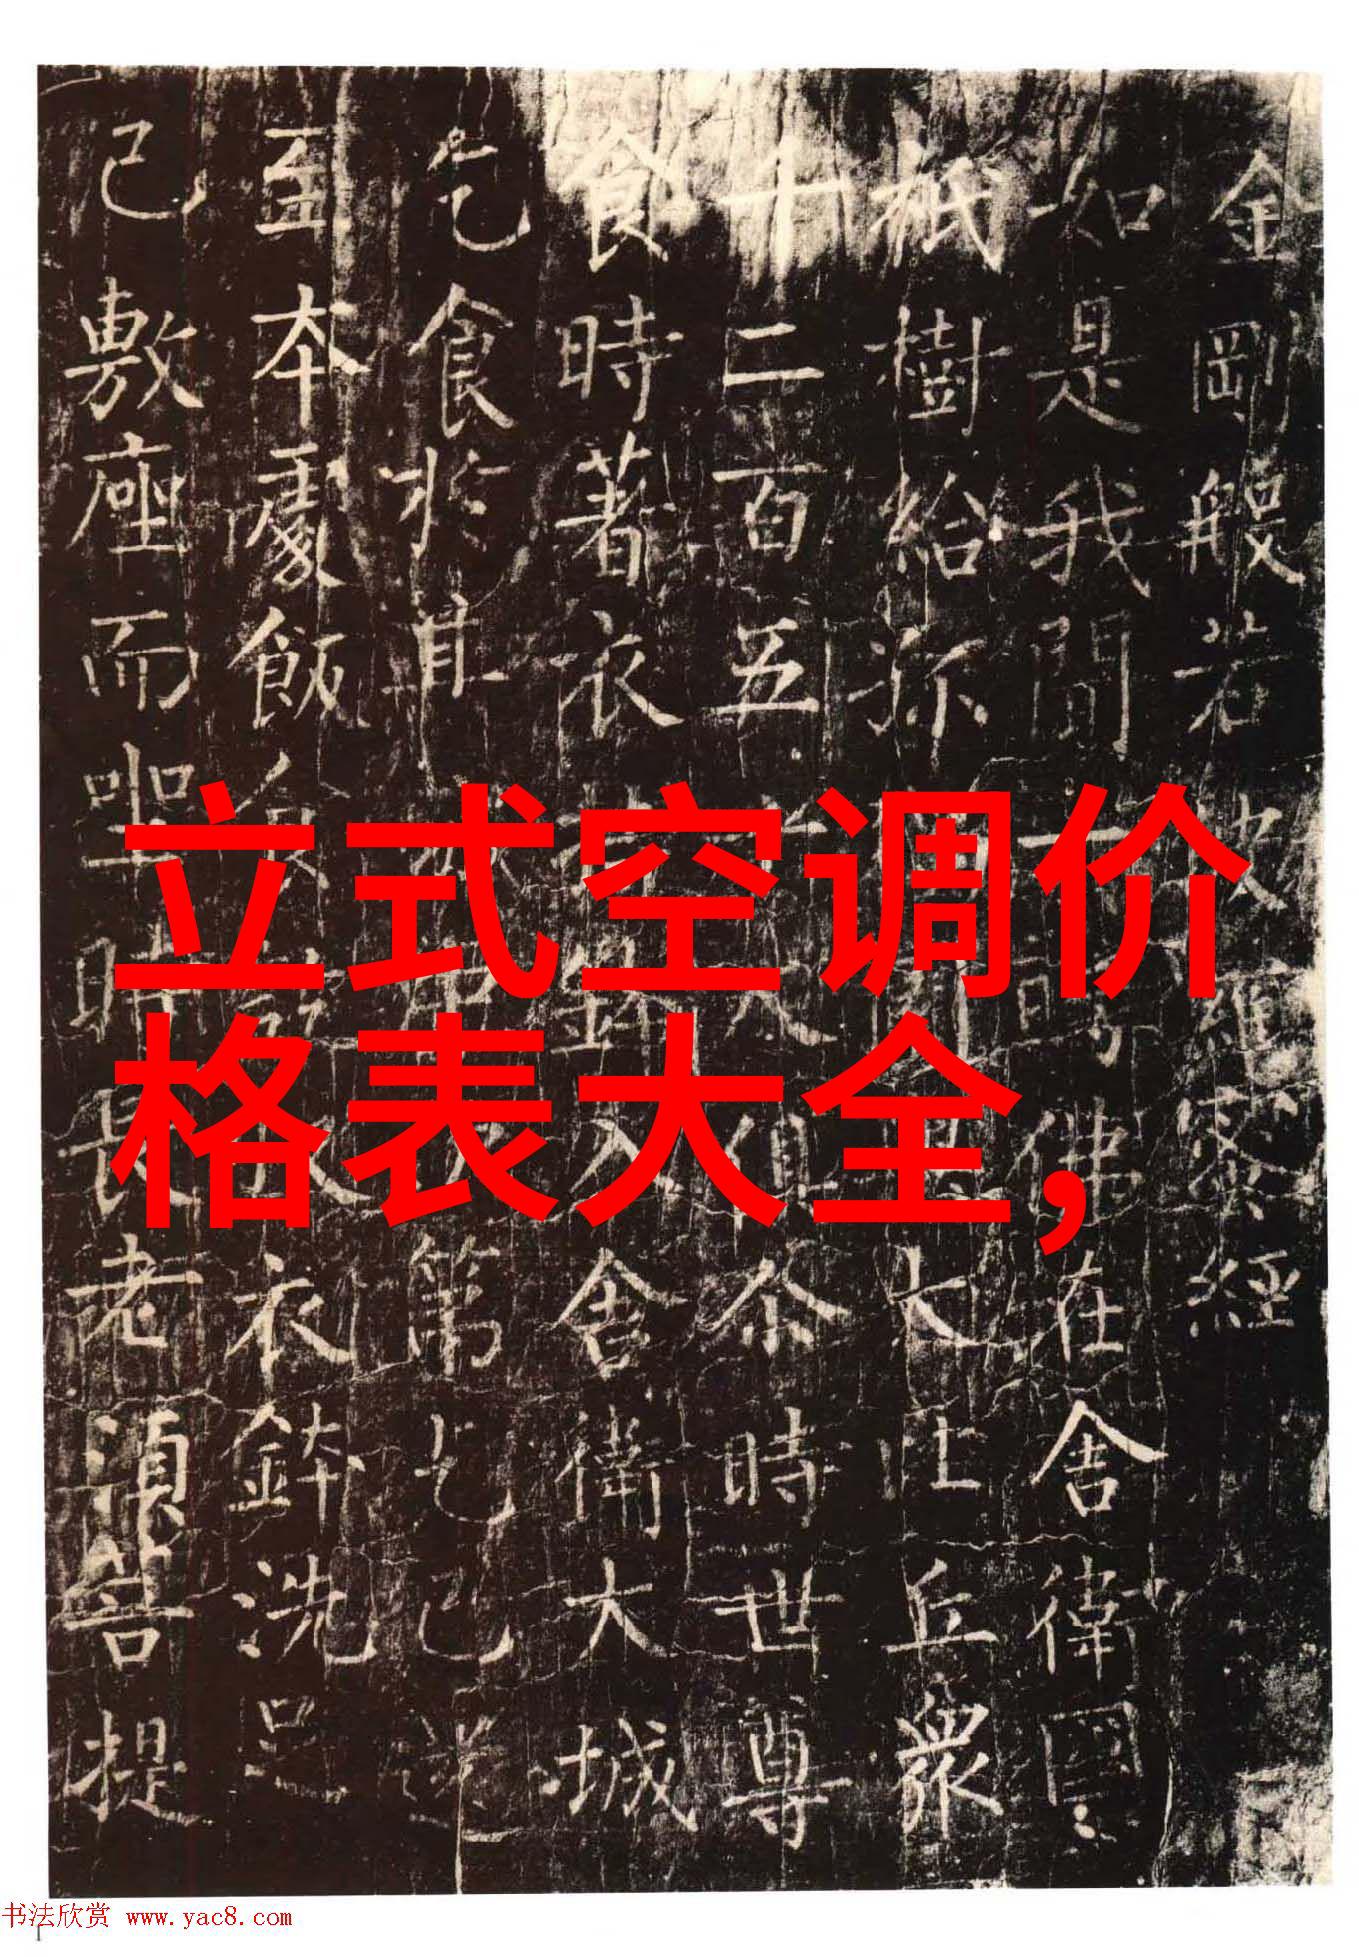 金剛般若波羅蜜經
如是我聞一時佛在舍衛國
祇樹給孤大比丘衆
十二百五十人俱尒時世尊
食時著衣持鉢入舍衛大城
乞食於其城中第乞已還
至本處飯食訖收衣鉢洗足
已敷座而坐時長老須菩提
立式空调价
格表大全,
书法欣赏 www.yac8.com